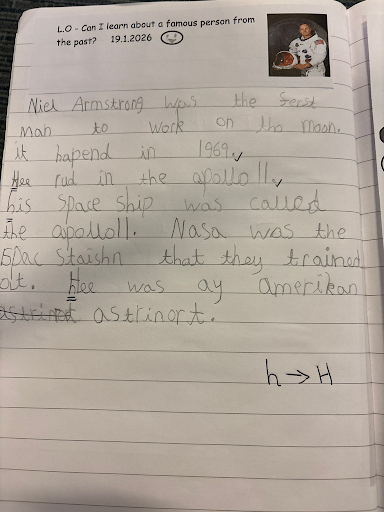 L.O - Can I learn about a famous person from
the past? 19.1.2026
Niel Armstrong was the ferst
man to work on tho moon.
it hapend in 1969
Hee rud in the apollo 11
his space ship was called
the apollo11. Nasa was the
spac staishn that they trained
at. Hee was ay amerikan
astrinort.
h → H